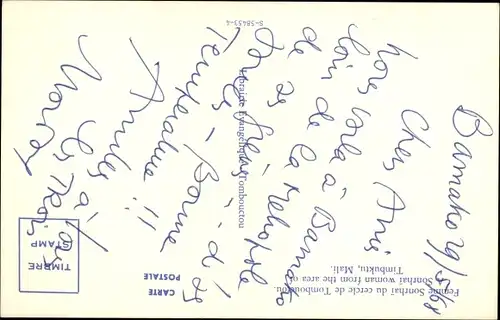 Bamako 29/5/68
Chers Amis
nous voila à Bamako
loin de la Metropole
de 25
Température !!
Bonne
Amitiés à tous
les trois
Femme Sonthai du cercle de Tombouctou.
A Sonthai woman from the area of
Timbuktu, Mali.
Librairie Evangélique, Tombouctou
S-58453-4
CARTE
POSTALE
TIMBRE
STAMP